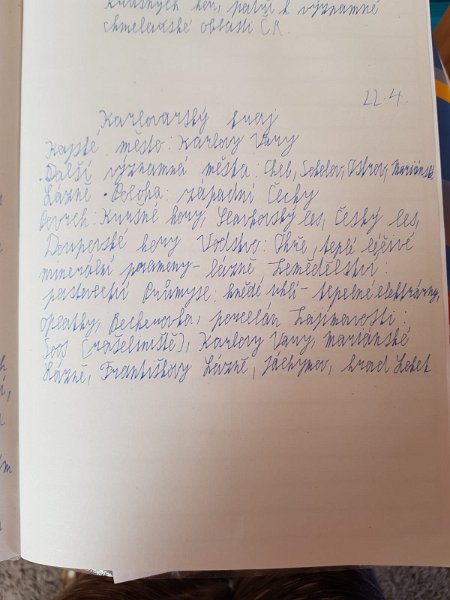 Krušných hor, patří k významné
chmelařské oblasti ČR.
22.4.
Karlovarský kraj
Krajské město: Karlovy Vary
• Další významná města: Cheb, Sokolov, Ostrov, Mariánské
Lázně • Poloha: západní Čechy
Povrch: Krušné hory, Slavkovský les, Český les,
Doupovské hory Vodstvo: Ohře, teplé léčivé
minerální prameny - lázně, Zemědělství:
pastevectví Průmysl: hnědé uhlí - tepelné elektrárny,
oplatky, Becherovka, porcelán Zajímavosti:
Soos (rašeliniště), Karlovy Vary, Mariánské
Lázně, Františkovy Lázně, Jáchymov, hrad Loket